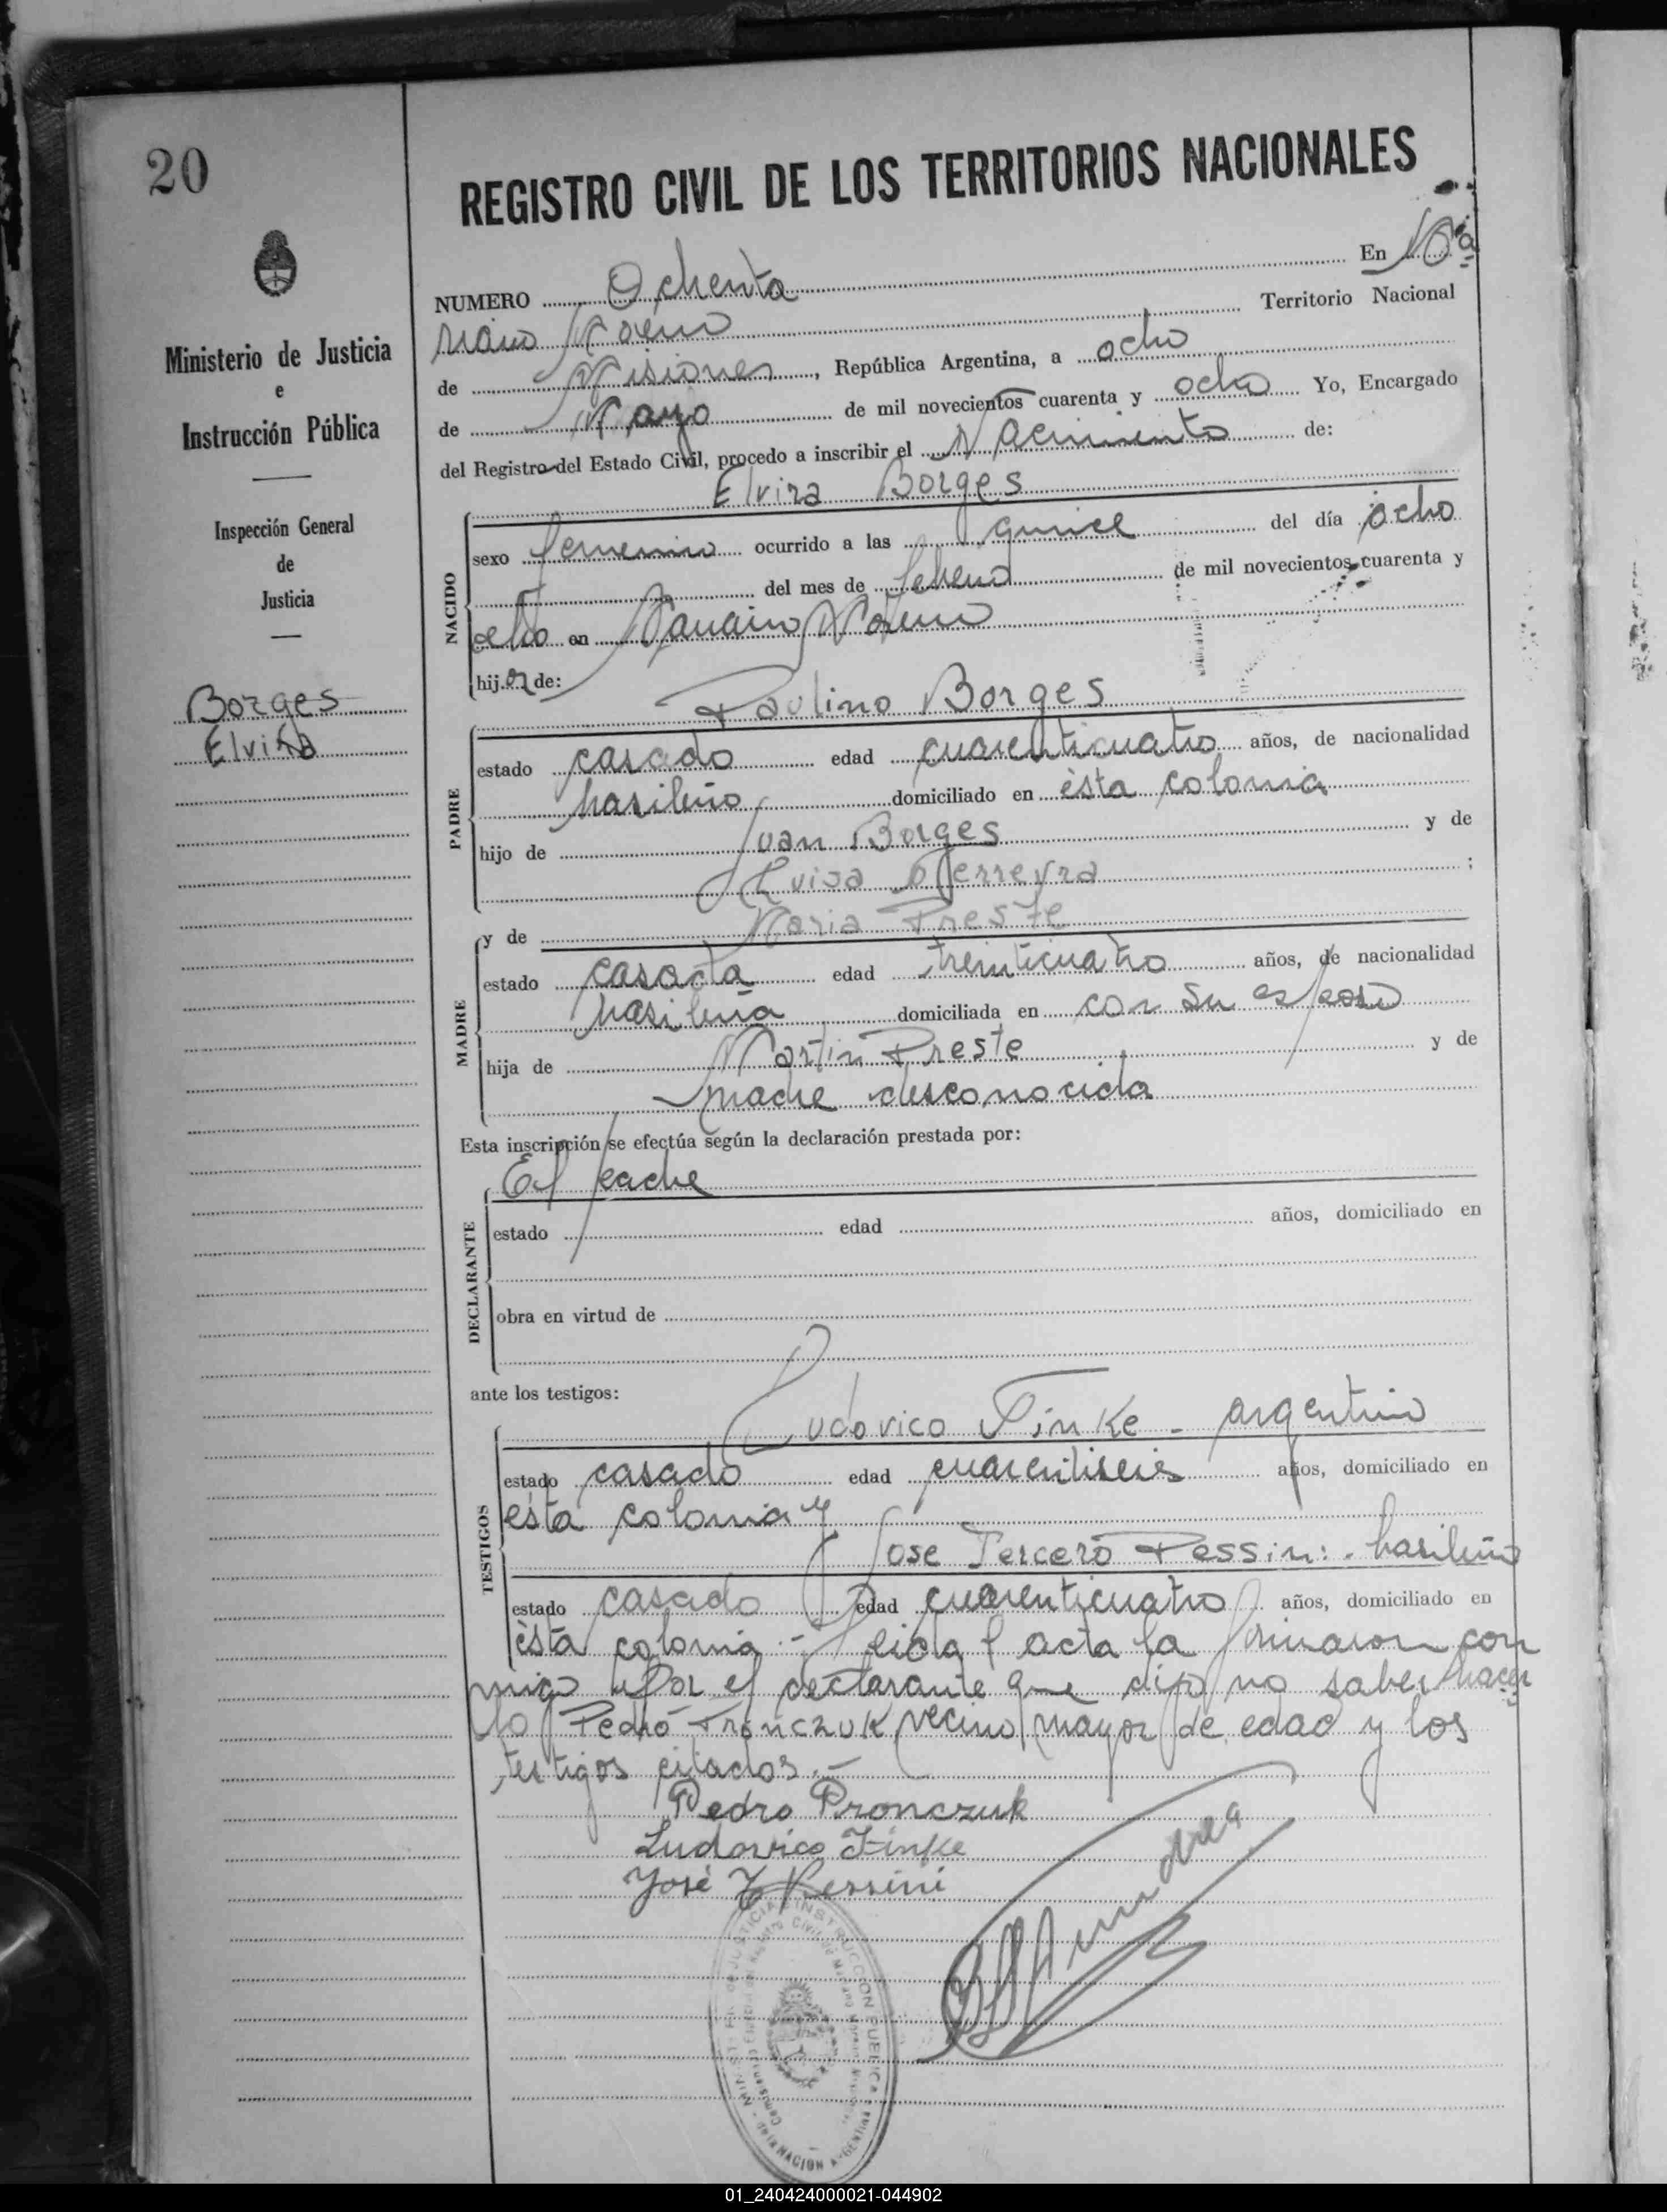 20
REGISTRO CIVIL DE LOS TERRITORIOS NACIONALES
Ministerio de Justicia
e
Instrucción Pública
Inspección General
de
Justicia
Borges
Elvira
NUMERO Ochenta En
riano Moreno Territorio Nacional
de Misiones, República Argentina, a ocho
de Mayo de mil novecientos cuarenta y ocho Yo, Encargado
del Registro del Estado Civil, procedo a inscribir el Nacimiento de:
Elvira Borges
NACIDO
sexo femenino ocurrido a las quince del día ocho
del mes de febrero de mil novecientos cuarenta y
ocho en Moreno
hija de:
Paulino Borges
PADRE
estado casado edad cuarenticuatro años, de nacionalidad
brasileño domiciliado en ésta colonia
hijo de Juan Borges y de
Luisa Ferreyra ;
y de Maria Preste
MADRE
estado casada edad treinticuatro años, de nacionalidad
brasileña domiciliada en con su esposo
hija de Martin Preste y de
madre desconocida
Esta inscripción se efectúa según la declaración prestada por:
El padre
DECLARANTE
estado edad años, domiciliado en
obra en virtud de
ante los testigos:
Ludovico Finke - argentino
TESTIGOS
estado casado edad cuarentiseis años, domiciliado en
ésta colonia y
Jose Tercero Pessini. brasileño
estado casado edad cuarenticuatro años, domiciliado en
ésta colonia.- leida el acta la firmaron con
migo por el declarante que dijo no saber hacer
lo Pedro Pronczuk vecino mayor de edad y los
testigos citados.-
Pedro Pronczuk
Ludovico Finke
José T Pessini
01_240424000021-044902